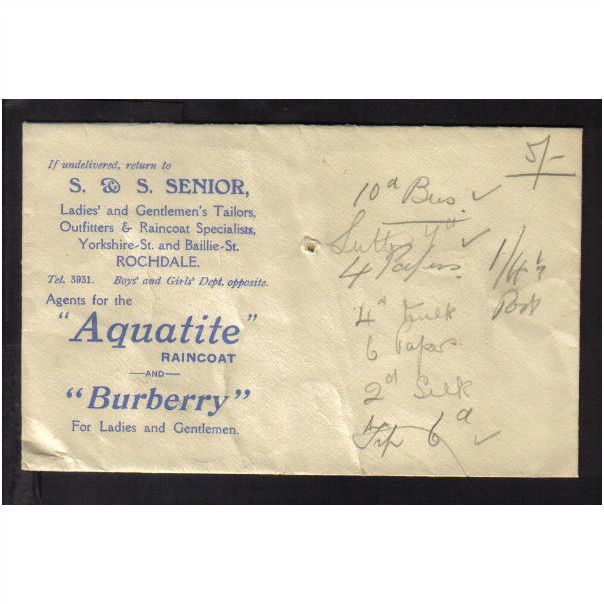 If undelivered, return to
S. & S. SENIOR,
Ladies' and Gentlemen's Tailors,
Outfitters & Raincoat Specialists,
Yorkshire-St. and Baillie-St.
ROCHDALE.
Tel. 3931. Boys' and Girls' Dept. opposite.
Agents for the
"Aquatite"
RAINCOAT
—AND—
"Burberry"
For Ladies and Gentlemen.
5/-
10d Bus. ✓
4d ✓
4 Papers.
4d
6 Papers
2d Silk
6d ✓